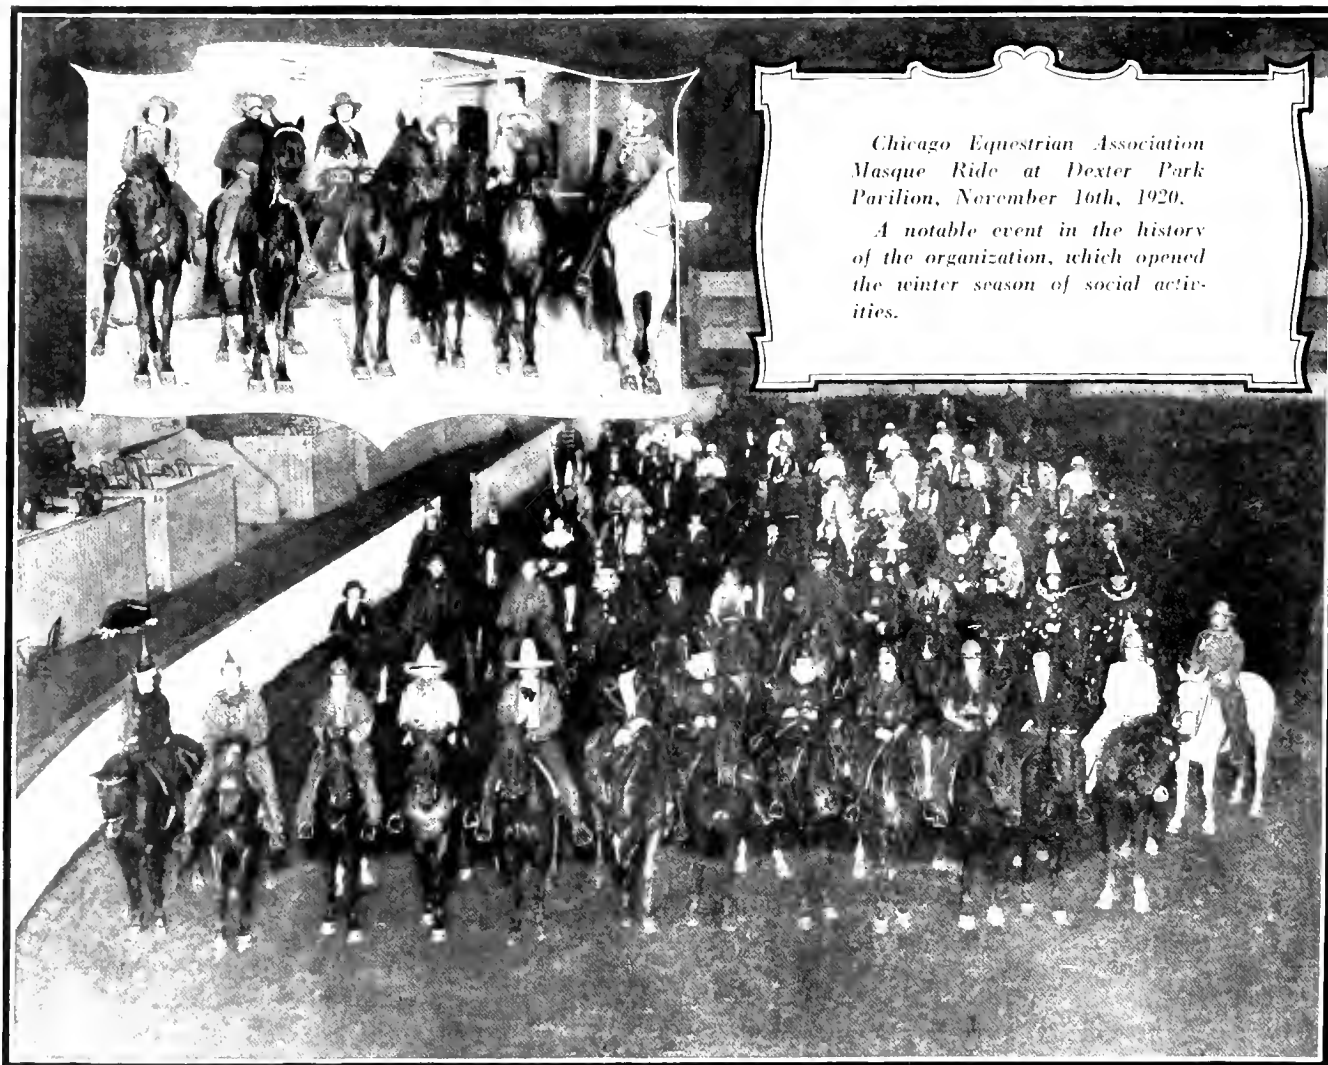 Chicago Equestrian Association
Masque Ride at Dexter Park
Pavilion, November 16th, 1920.
A notable event in the history
of the organization, which opened
the winter season of social activ-
ities.